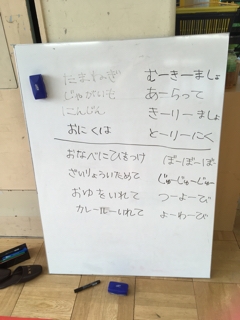 たまねぎ むーきーましょ
じゃがいも あーらって
にんじん きーりーましょ
おにくは とーりーにく
おなべにひをつけ ぼーぼーぼ
ざいりょういためて じゅーじゅーじゅー
おゆをいれて つーよーび
カレー いれて よーわーび